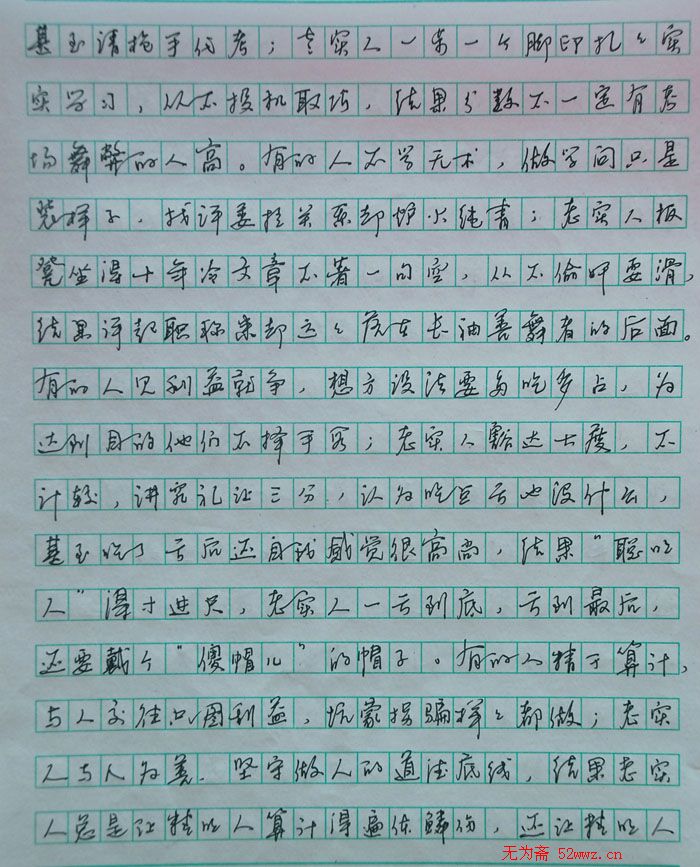 甚至请抢手代考；老实人一步一个脚印扎々实
实学习，从不投机取巧，结果分数不一定有考
场舞弊的人高。有的人不学无术，做学问只是
装样子，找评委拉关系却炉火纯青；老实人板
凳坐得十年冷文章不著一句空，从不偷奸耍滑，
结果评起职称来却远々落在长袖善舞者的后面。
有的人见利益就争，想方设法要多吃多占，为
达到目的他们不择手段；老实人豁达大度，不
计较，讲究礼让三分，认为吃点亏也没什么，
甚至吃了亏后还自我感觉很高尚，结果“聪明
人”得寸进尺，老实人一亏到底，亏到最后，
还要戴个“傻帽儿”的帽子。有的人精于算计，
与人交往只图利益，坑蒙拐骗样々都做；老实
人与人为善．坚守做人的道德底线，结果老实
人总是让精明人算计得遍体鳞伤，还让精明人
无为斋 52wwz.cn